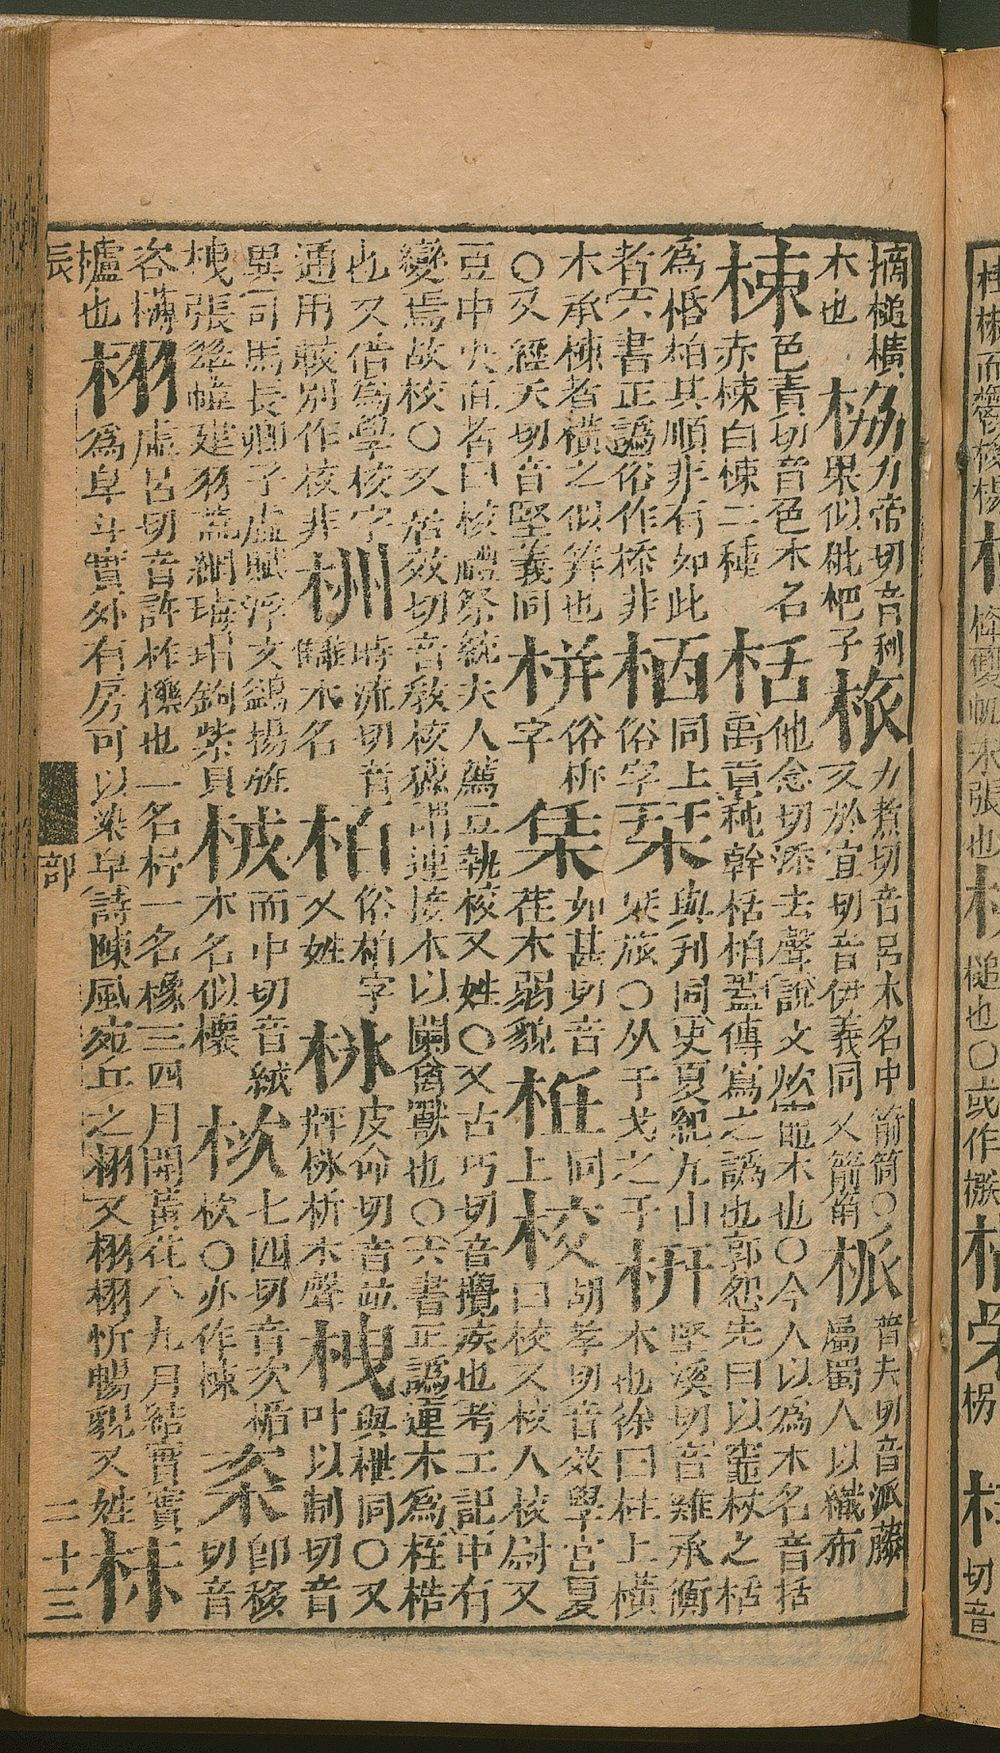 摘槌橫木也 栵 力帝切音利果似枇杷子 力煮切音呂木名中箭筒〇又於宜切音伊義同又箭筲 普夫切音派藤屬蜀人以織布
梀 色責切音色木名赤梀白梀二種 栝 他念切添去聲說文炊竈木也〇今人以為木名音括禹貢杶幹栝柏蓋傳寫之譌也郭恕先曰以竈杖之栝
為栝柏其順非有如此者六書正譌俗作㮇非 栖 同上俗字 栞 與刊同史夏紀九山栞旅〇从干戈之干 枅 堅溪切音雞承衡木也徐曰柱上橫
木承棟者橫之似筓也〇又經天切音堅義同 栟 俗枅字 栠 如甚切音荏木弱貌 栣 同上 校 胡孝切音效學宮夏曰校又校人校尉又
豆中央直者曰校禮祭統夫人薦豆執校又姓〇又古巧切音攪疾也考工記中有變焉故校〇又居效切音教校獵謂連接木以闌禽獸也〇六書正譌連木為桎梏
也又借為學校字通用較別作挍非 栦 時流切音讎木名 栢 俗柏字又姓 皮命切音竝析木聲 栧 與枻同〇又叶以制切音
異司馬長卿子虛賦浮文鷁揚旌栧張翠帷建羽蓋網瑇瑁鉤紫貝 而中切音絨木名似檍 栨 七四切音次楯栨〇亦作 即移切音
咨欂櫨也 栩 虛呂切音許柞櫟也一名杼一名橡三四月開黃花八九月結實實為皁斗實外有房可以染皁詩陳風宛丘之栩又栩栩忻暢貌又姓
辰 部 二十三